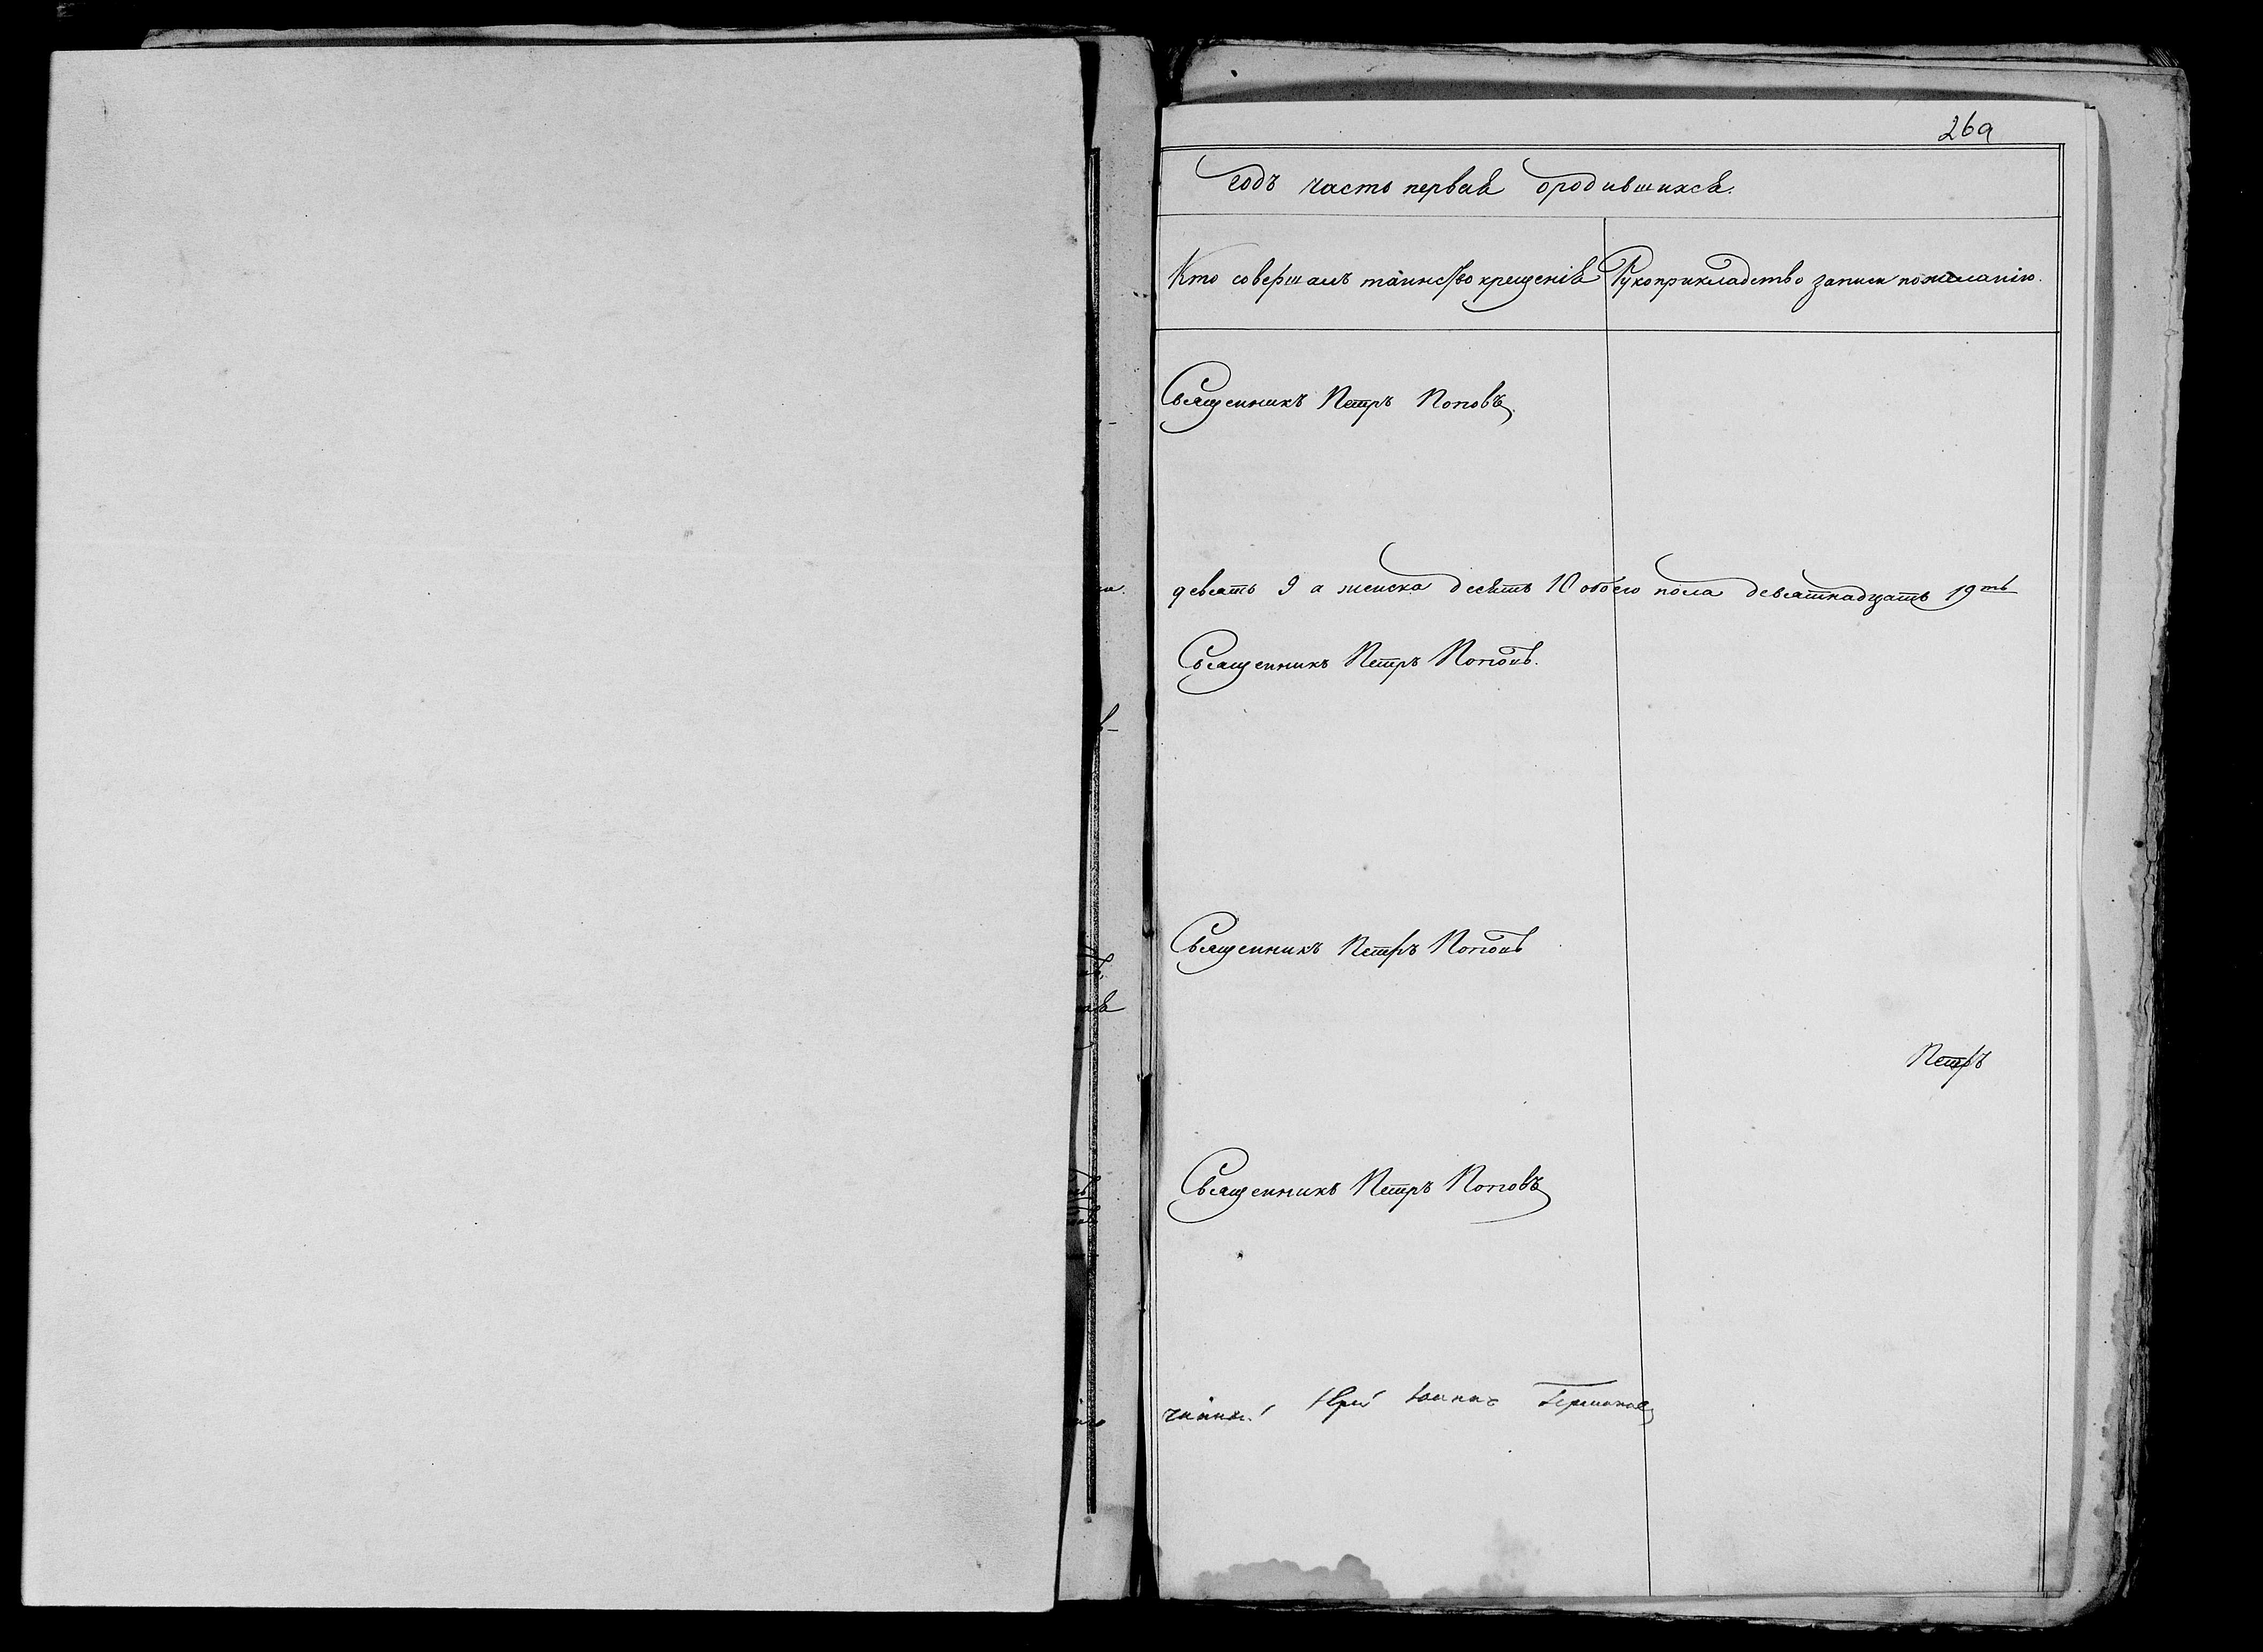 269
годъ часть первая ородившихся.
Кто совершалъ таинство крещенія Рукоприкладство записи пожеланію.
Священникъ Петръ Поповъ
девять 9 а женска десять 10 обоего пола девятнадцать 19ть
Священникъ Петръ Поповъ.
Священникъ Петръ Поповъ
Петръ
Священникъ Петръ Поповъ